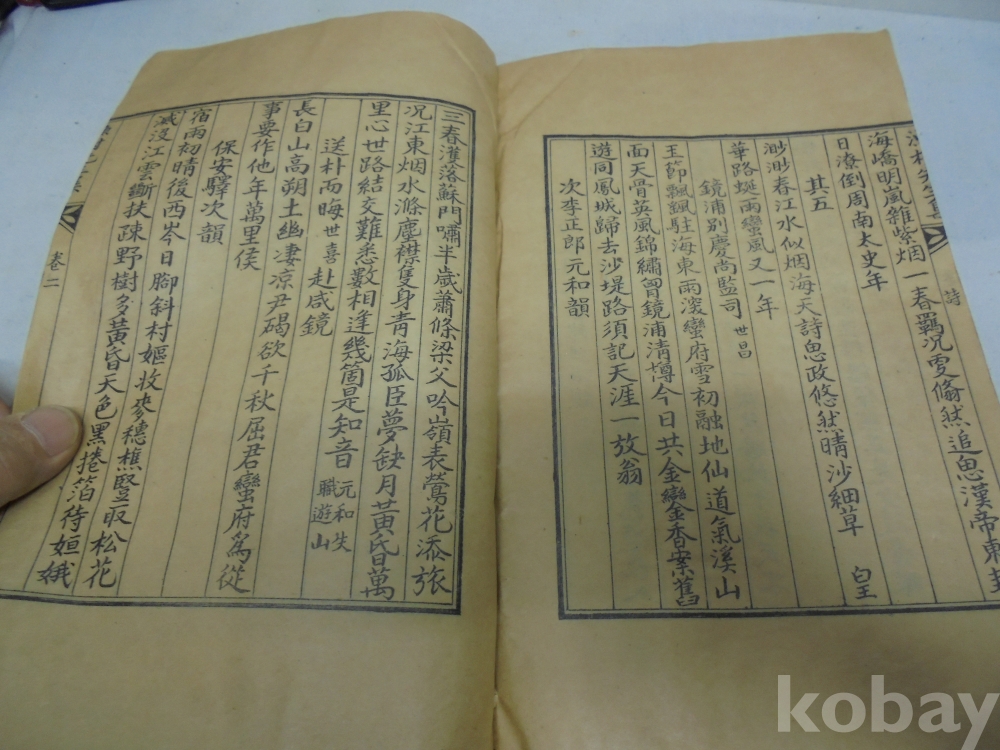 詩
海嶠明嵐雜紫烟一春羈況更翛然追思漢帝東封
日潦倒周南太史年
其五
渺渺春江水似烟海天詩思政悠然晴沙細草皇
華路蜒雨蠻風又一年
鏡浦別慶尚監司世昌
玉節飄飄駐海東兩浚蠻府雪初融地仙道氣溪山
面天骨英風錦繡胷鏡浦淸樽今日共金鑾金香案舊
遊同鳳城歸去沙堤路須記天涯一放翁
次李正郎元和韻
三春濩落蘇門嘯半歲蕭條梁父吟嶺表鶯花添旅
況江東烟水滌塵襟隻身青海孤臣夢缺月黃昏萬
里心世路結交難悉數相逢幾箇是知音元和失職遊山
送朴而晦世喜赴咸鏡
長白山高朔土幽凄凉尹碣欲千秋屈君蠻府爲從
事要作他年萬里侯
保安驛次韻
宿雨初晴後西岑日脚斜村嫗收麥穗樵豎取松花
滅沒江雲斷扶疎野樹多黃昏天色黑捲箔待姮娥
卷二
kobay